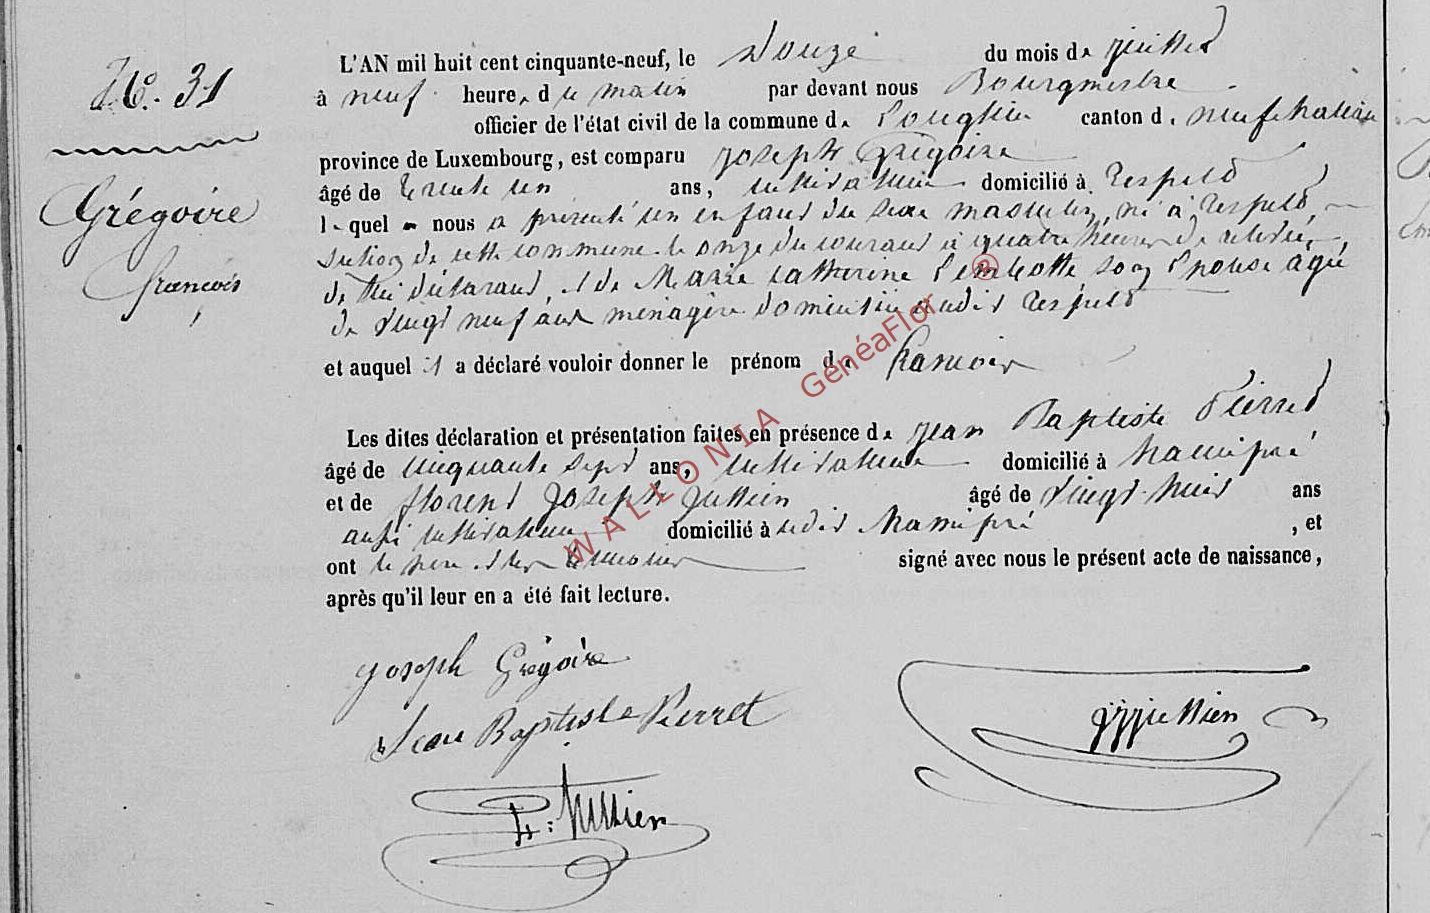 N.° 31
Grégoire
François
L'AN mil huit cent cinquante-neuf, le douze du mois de juillet
à neuf heures du matin par devant nous Bourgmestre
officier de l'état civil de la commune de Longlier canton de neufchateau
province de Luxembourg, est comparu Joseph Grégoire
âgé de trente un ans, cultivateur domicilié à Respelt
lequel nous a présenté un enfant du sexe masculin, né à Respelt,
section de cette commune le onze du courant à quatre heures de relevée,
de lui déclarant, et de Marie catherine son Epouse agée
de vingt neuf ans ménagère domiciliée audit Respelt
et auquel il a déclaré vouloir donner le prénom de francois
Les dites déclaration et présentation faites en présence de jean Baptiste Pierret
âgé de cinquante sept ans, cultivateur domicilié à hamipré
et de florent Joseph Jullien âgé de vingt-huit ans
aussi cultivateur domicilié à hamipré , et
ont le père et les témoins signé avec nous le présent acte de naissance,
après qu'il leur en a été fait lecture.
Joseph Grégoire
Jean Baptiste Pierret
Jullien
WALLONIA GénéaFlor ®